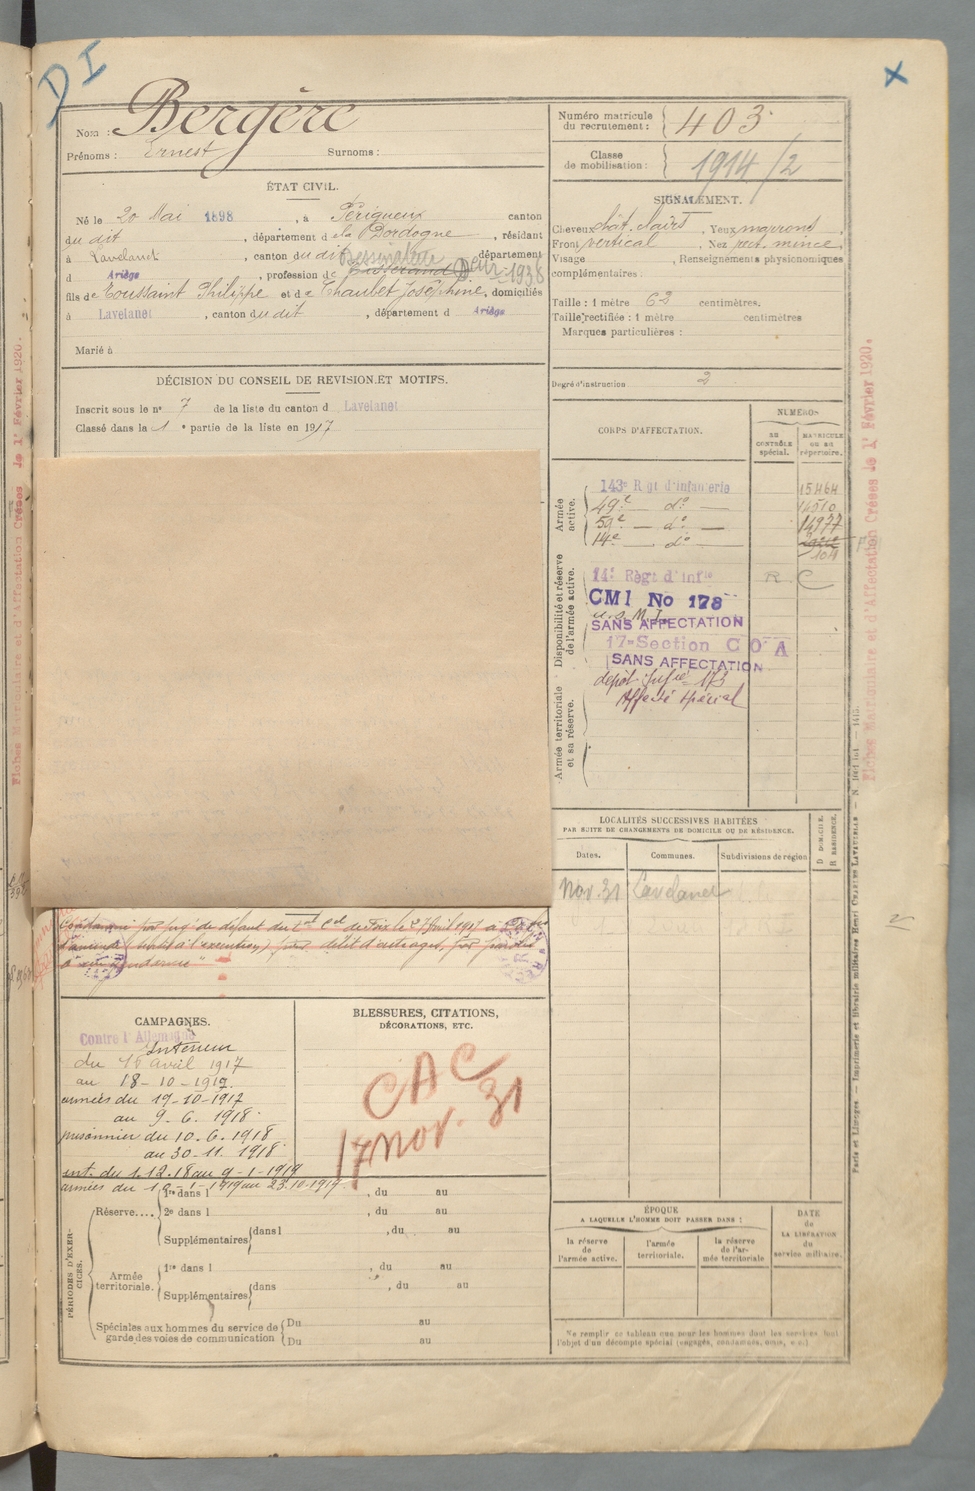 DI
Nom : Bergère
Prénoms : Ernest Surnoms :
ÉTAT CIVIL.
Né le 20 Mai 1898, à Périgueux canton
du dit, département d e la Dordogne, résidant
à Lavelanet, canton du dit, département
d Ariège, profession de Dessinateur 1938
fils de Toussaint Philippe et de Chaubet Joséphine, domiciliés
à Lavelanet, canton du dit, département d Ariège
Marié à
DÉCISION DU CONSEIL DE REVISION ET MOTIFS.
Inscrit sous le n° 7 de la liste du canton d Lavelanet
Classé dans la 1e partie de la liste en 1917
à l'amende
CAMPAGNES.
Contre l'Allemagne
Intérieur
du 16 avril 1917
au 18-10-1917.
armées du 19-10-1917
au 9.6.1918.
prisonnier du 10.6.1918
au 30-11.1918.
int. du 1.12.18 au 9-1-1919
armées du 10-1-1919 au 23.10.1919.
BLESSURES, CITATIONS,
DÉCORATIONS, ETC.
CAC
17 nov. 31
PÉRIODES D'EXERCICES.
Réserve.... 1re dans l , du au
2e dans l , du au
Supplémentaires dans l , du au
Armée territoriale. 1re dans l , du au
Supplémentaires dans , du au
Spéciales aux hommes du service de garde des voies de communication Du au
Du au
Numéro matricule du recrutement : 403
Classe de mobilisation : 1914/2
SIGNALEMENT.
Cheveux chât. clairs, Yeux marrons,
Front vertical, Nez rect. mince,
Visage , Renseignements physionomiques
complémentaires :
Taille : 1 mètre 62 centimètres.
Taille rectifiée : 1 mètre centimètres
Marques particulières :
Degré d'instruction 2
CORPS D'AFFECTATION.
NUMÉROS
AU CONTRÔLE spécial.
MATRICULE ou au répertoire.
Armée active.
143e Régt d'infanterie 15464
49e — do — 14510
59e — do — 14977
14e — do — 104
Disponibilité et réserve de l'armée active.
14e Régt d'Infie R. C
CMI No 178
SANS AFFECTATION
17e Section C O A
SANS AFFECTATION
Armée territoriale et sa réserve.
dépôt Infie 173
Affecté spécial
LOCALITÉS SUCCESSIVES HABITÉES
PAR SUITE DE CHANGEMENTS DE DOMICILE OU DE RÉSIDENCE.
Dates. Communes. Subdivisions de région D DOMICILE. R RÉSIDENCE.
Nov. 31 Lavelanet
ÉPOQUE
A LAQUELLE L'HOMME DOIT PASSER DANS :
la réserve de l'armée active. l'armée territoriale. la réserve de l'armée territoriale
DATE de LA LIBÉRATION du service militaire.
Ne remplir ce tableau que pour les hommes dont les services font
l'objet d'un décompte spécial (engagés, condamnés, omis, etc.)
Fiches Matriculaire et d'Affectation Créées le 1er Février 1920.
Fiches Matriculaire et d'Affectation Créées le 1er Février 1920.
Paris et Limoges. — Imprimerie et librairie militaires Henri CHARLES-LAVAUZELLE